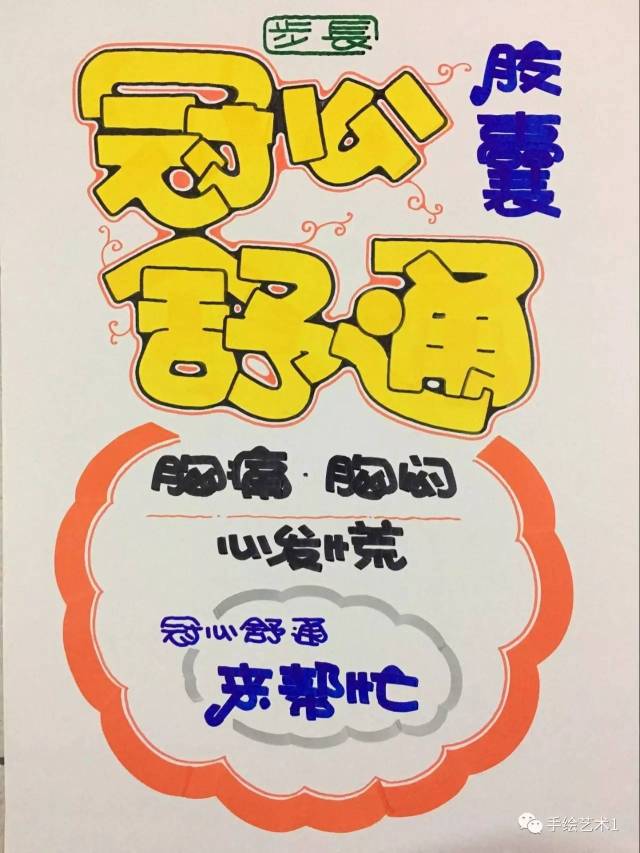 步長
冠心
舒通
胶囊
胸痛·胸闷
心发慌
冠心舒通
来帮忙
手绘艺术1